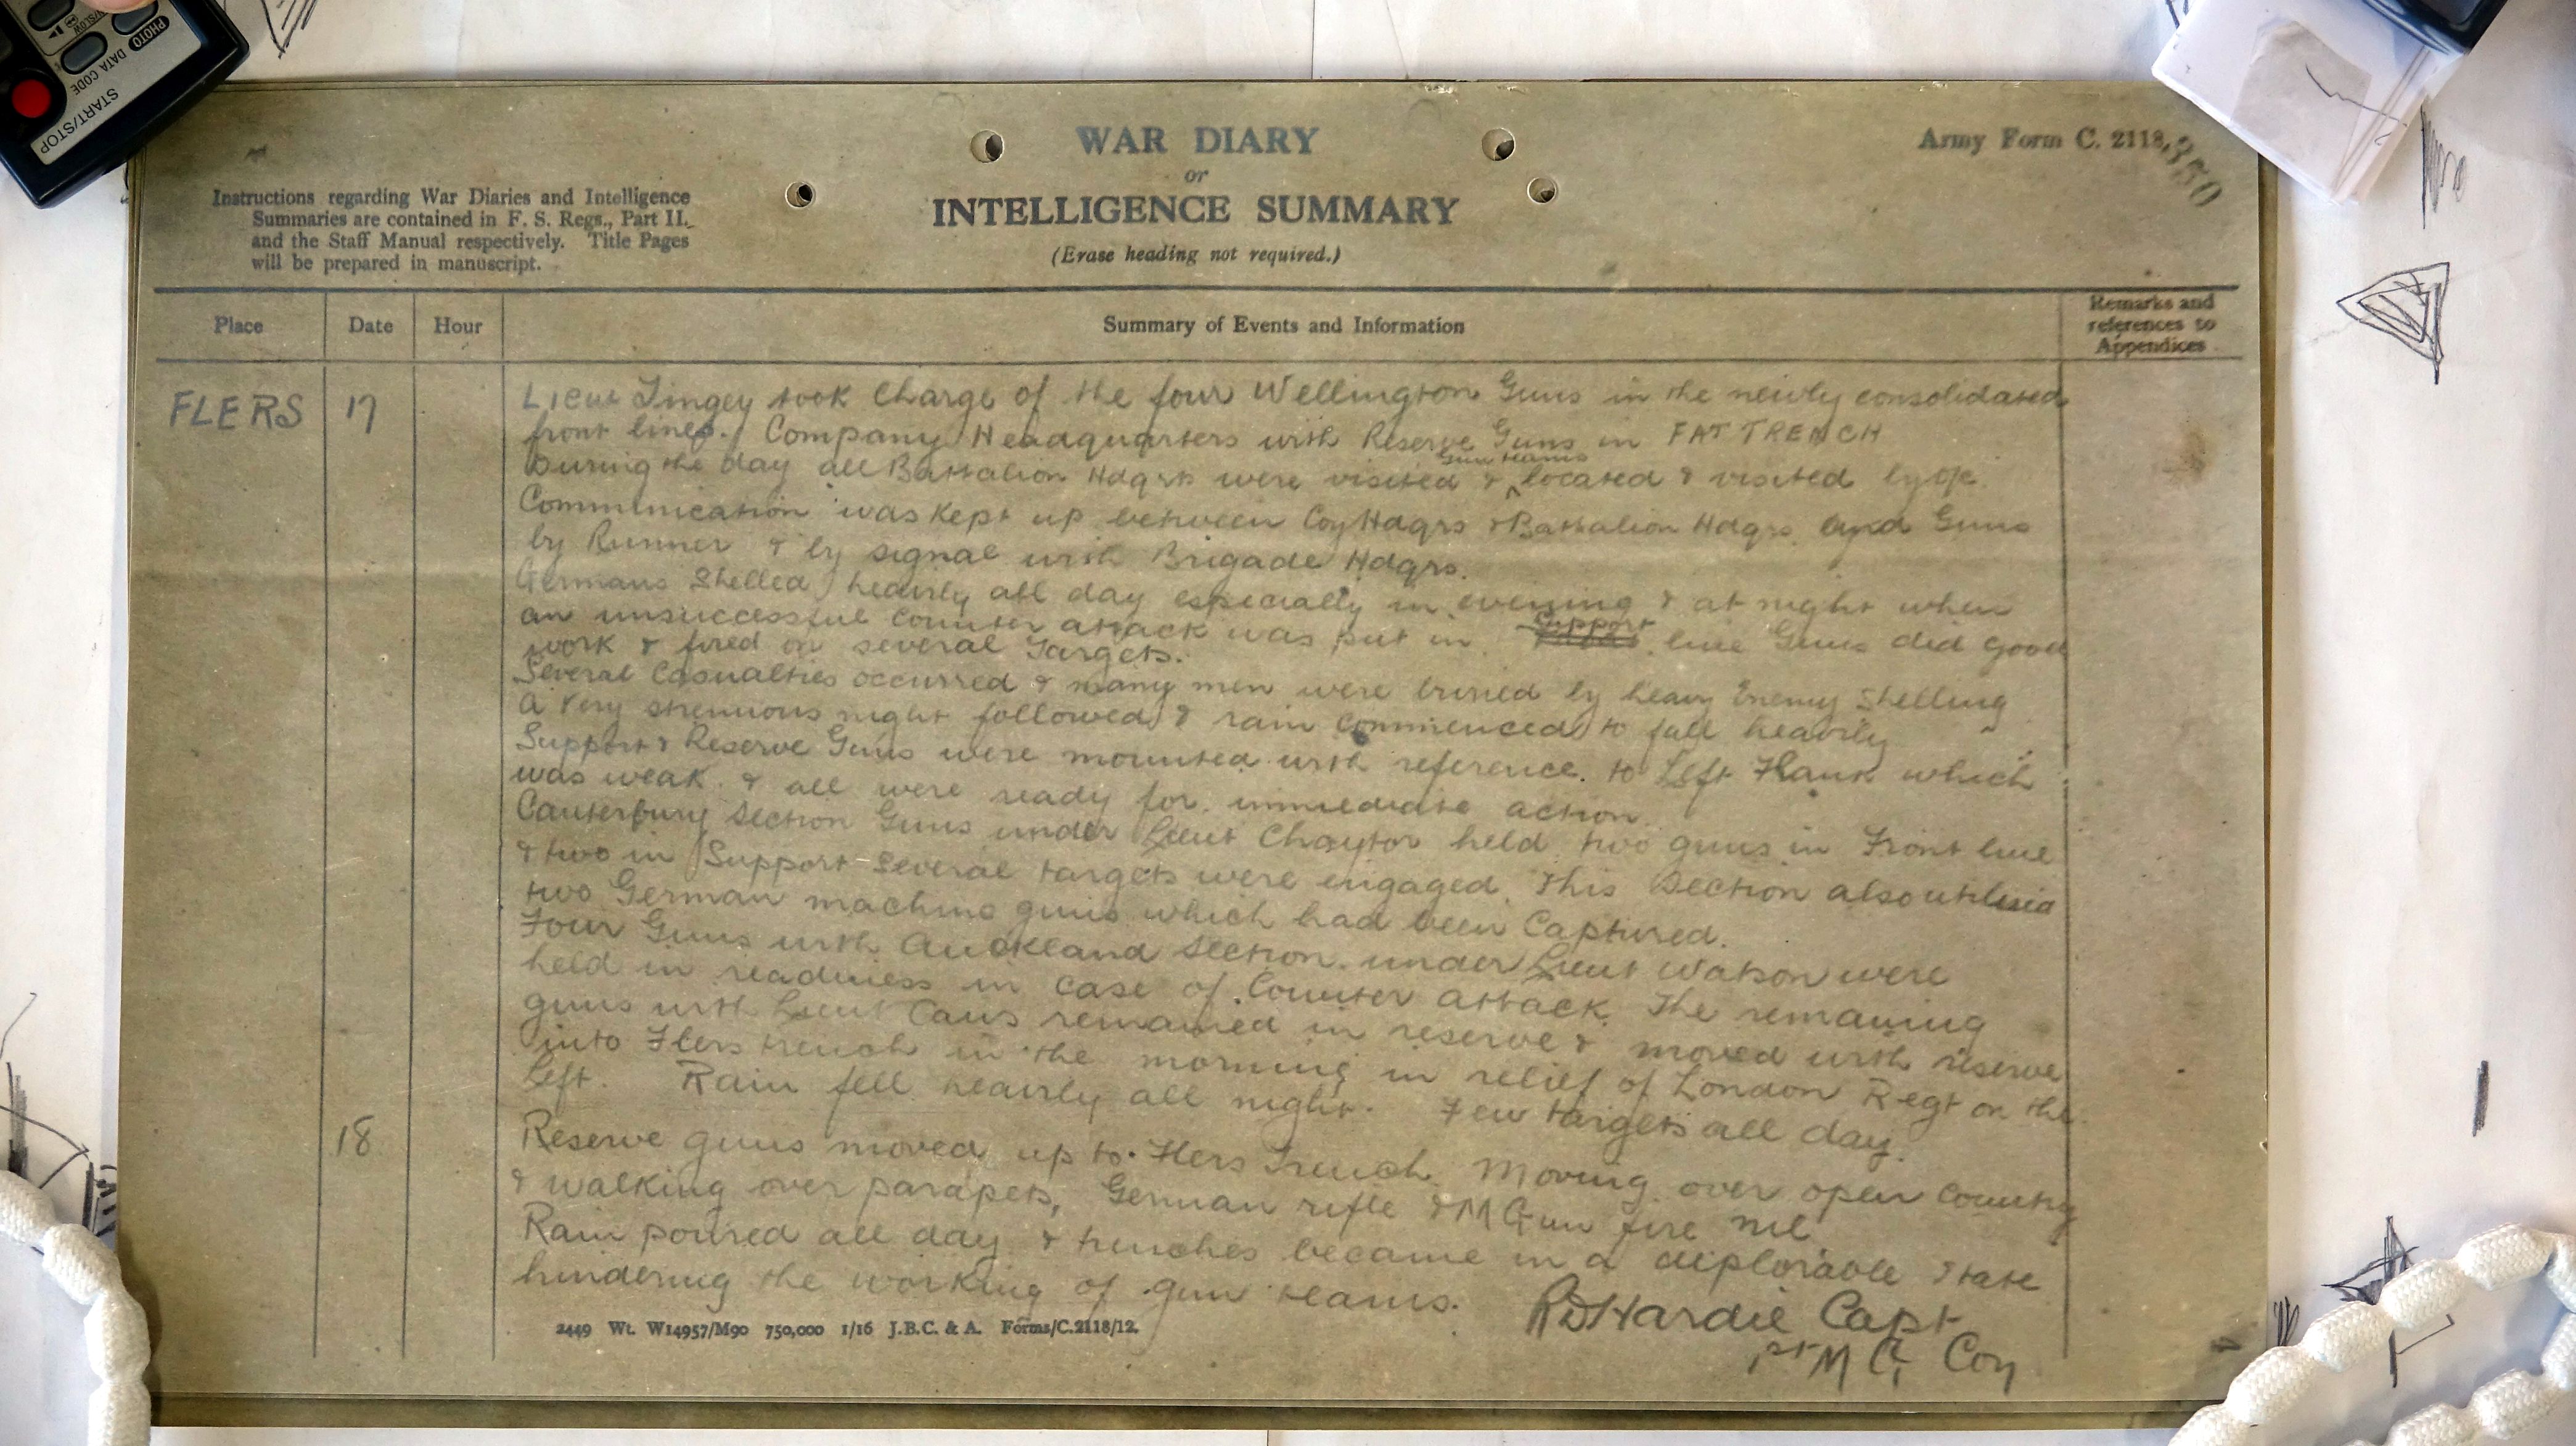 START/STOP
DATA CODE
PHOTO
WAR DIARY
or
INTELLIGENCE SUMMARY
(Erase heading not required.)
Army Form C. 2118.
350
Instructions regarding War Diaries and Intelligence
Summaries are contained in F. S. Regs., Part II.
and the Staff Manual respectively. Title Pages
will be prepared in manuscript.
Place Date Hour Summary of Events and Information Remarks and references to Appendices
FLERS 17 Lieut Tingey took Charge of the four Wellington Guns in the newly consolidated
front lines. Company Headquarters with Reserve Guns in FAT TRENCH
During the day all Battalion Hdqrs were visited & gun teams located & visited by
Communication was kept up between Coy Hdqrs & Battalion Hdqrs. and Guns
by Runner & by signal with Brigade Hdqrs.
Germans Shelled heavily all day especially in evening & at night when
an unsuccessful Counter attack was put in. Support line Guns did good
work & fired on several Targets.
Several Casualties occurred & many men were buried by heavy Enemy Shelling
A very strenuous night followed & rain commenced to fall heavily
Support & Reserve Guns were mounted with reference. to Left Flank which
was weak. & all were ready for immediate action.
Canterbury Section Guns under Lieut Chaytor held two guns in Front line
& two in Support Several targets were engaged. This Section also utilised
two German machine guns which had been Captured.
Four Guns with Auckland Section. under Lieut Watson were
held in readiness in case of Counter attack. The remaining
guns with Lieut Caws remained in reserve & moved with reserve
into Flers trench in the morning in relief of London Regt on the
left. Rain fell heavily all night. Few targets all day.
18 Reserve guns moved up to. Flers Trench. Moving over open country
& walking over parapets, German rifle & M Gun fire nil
Rain poured all day & trenches became in a deplorable state
hindering the working of gun teams.
RDHardie Capt
1st M G Coy
2449 Wt. W14957/M90 750,000 1/16 J.B.C. & A. Forms/C.2118/12.